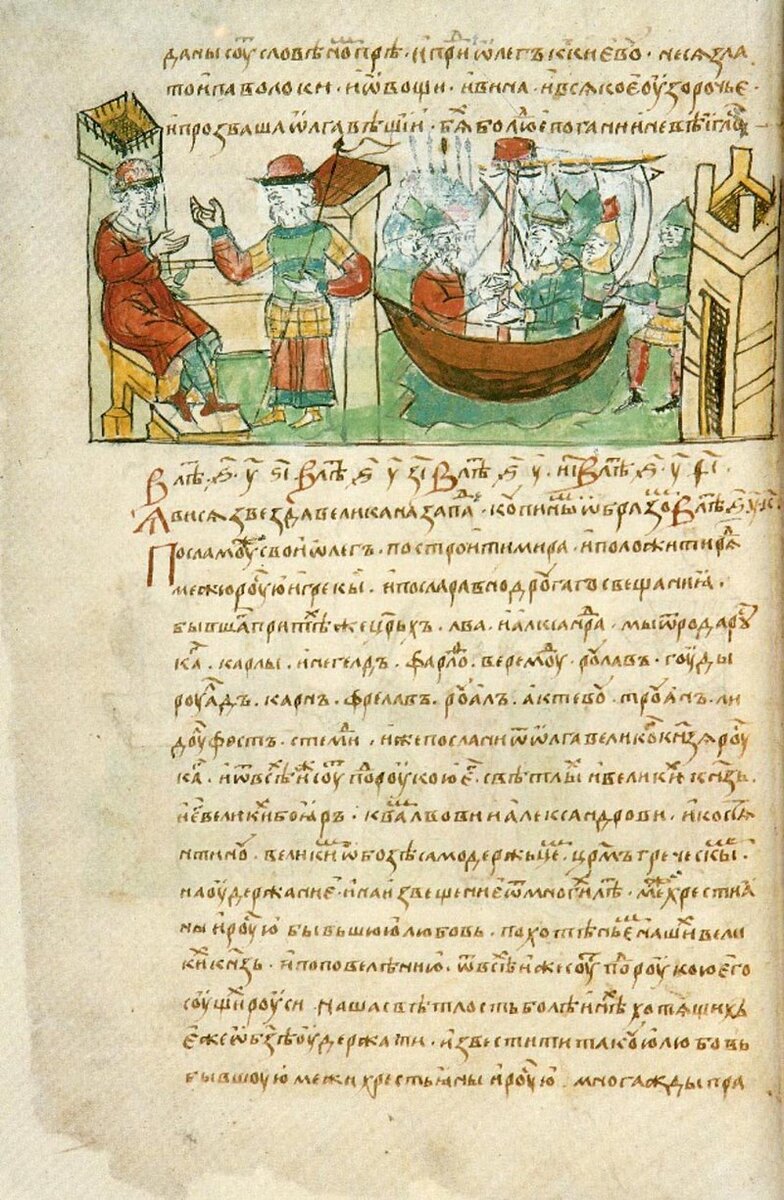 даны соуⷮ словѣноⷨ прⷭ҇ѣ · и приⷣ ѡлегъ к киевоу · неса зла
то и паволоки · и ѡвощи · и вина · и всѧкое оузорочье ·
и прозваша ѡлга вѣщїи · бѧⷯ бо люⷣе погани и невѣигло
В лѣⷮ · ҂ѕ҃ · у҃ · ѕі҃ · В лѣⷮ · ҂ѕ҃ · у҃ · зі҃ · В лѣⷮ · ҂ѕ҃ · у҃ · ні҃ · В лѣⷮ · ҂ѕ҃ · у҃ · ѳі҃ ·
Ӕвисѧ звезда велика на запаⷣ · копииныⷨ ѡбразоⷨ · В лѣⷮ · ҂ѕ҃ · у҃ · к҃ ·
Посла моуⷤ свои ѡлегъ · построити мира · и положити рѧⷣ
межю роусью и грекы · и посла равно дроугаго свещаниӕ ·
бывшаⷢ при тѣⷯ же цр҃ьхъ · лва · и алксанⷣра · мы ѿ рода рус
каⷢ · карлы · инегелдъ · фарлоⷴ · веремоуⷣ · роулавъ · гоуды
роуалдъ · карнъ · фрелавъ · роуалъ · актевоу · троуанъ · ли
доулфостъ · стемиⷣ · иже послани ѿ ѡлга великоⷢ кн҃зѧ роуⷭ
каⷢ · и ѿ всѣⷯ иже соуⷮ поⷣ роукою еⷢ · свѣтлыⷯ и великиⷯ кнѧзь ·
и еⷢ великиⷯ боӕръ · к ваⷨ львови и александрови · и костѧн
тиноу · великиⷨ ѡ бозѣ самодержьцеⷨ · цр҃мъ греческыⷨ ·
на оудержание · и на извещение ѿ многиⷯ лѣⷮ · межⷣю хрестиа
ны и роусью бывьшюю любовь · похотѣньеⷨ нашиⷯ вели
киⷯ кнѧзь · и по повелѣнию · ѿ всѣⷯ иже соуⷮ поⷣ роукою его
соущиⷯ роуси · наша свѣтлость боле инѣⷯ хотѧщихъ
еже ѡ бз҃ѣ оудержати · извѣстити такоую любовь
бывшоую межи хрестьӕны и роусью · многажды пра